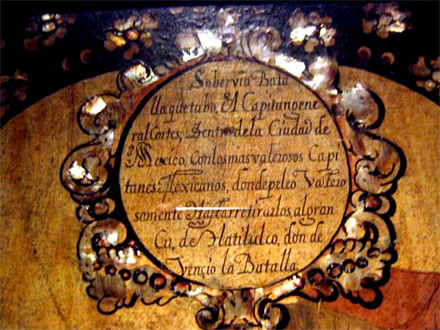 Sobervia Bata
lla que tubo, El Capitan gene
ral Cortes, Dentro de la Ciudad de
Mexico, Con los mas valerosos Capi
tanes Mexicanos, donde peleo Valero
samente Hasta rretirarlos, al gran
Cu, de Tlatilulco, don de
Vençio la Batalla